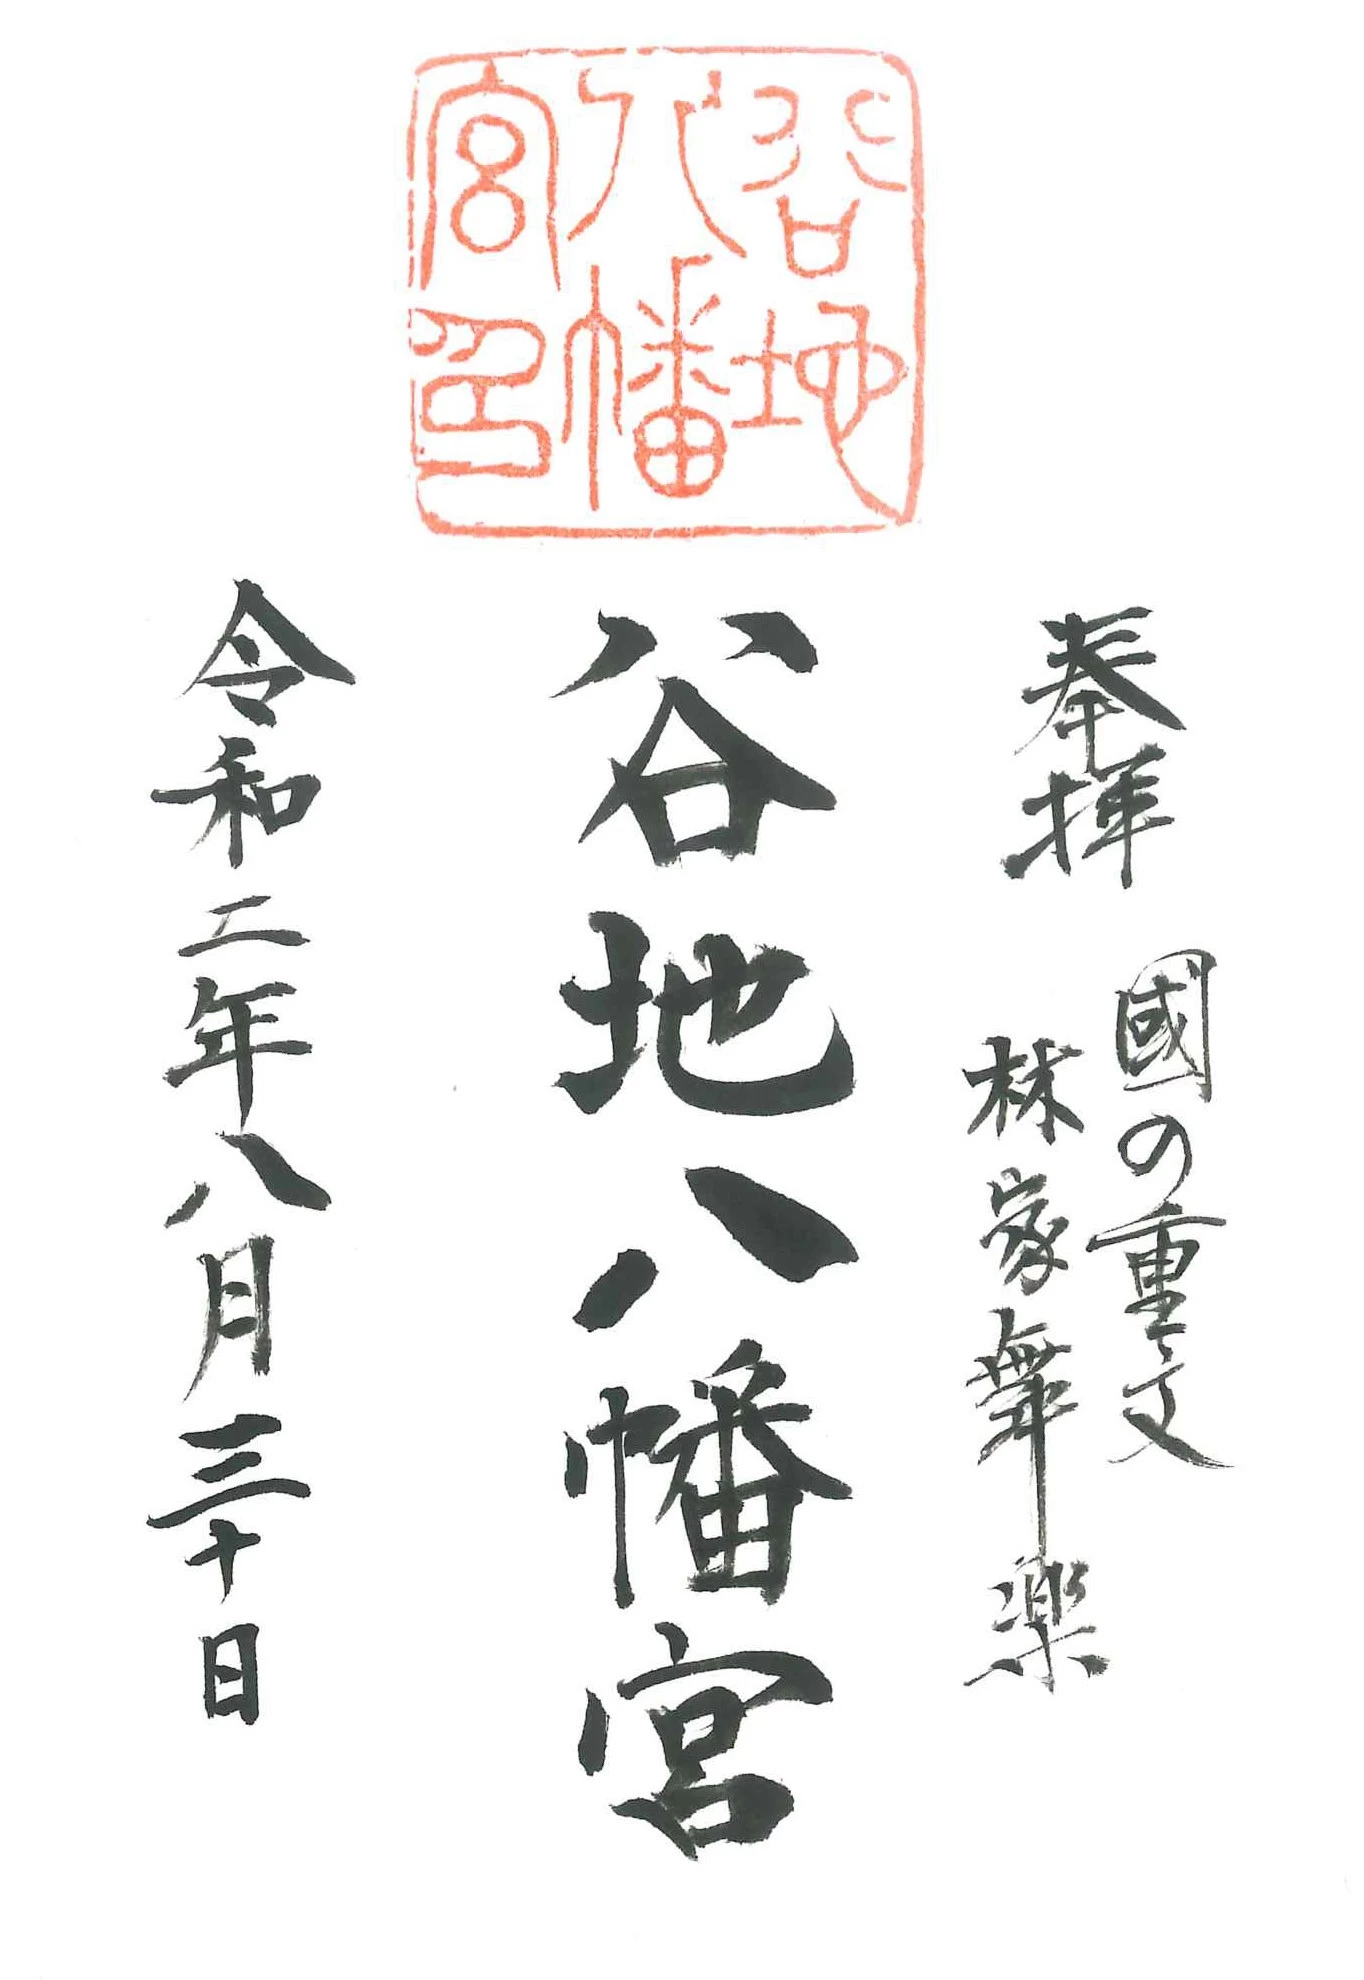 谷地
八幡
宮印
奉拝
國の重文
林家舞楽
谷地八幡宮
令和二年八月三十日